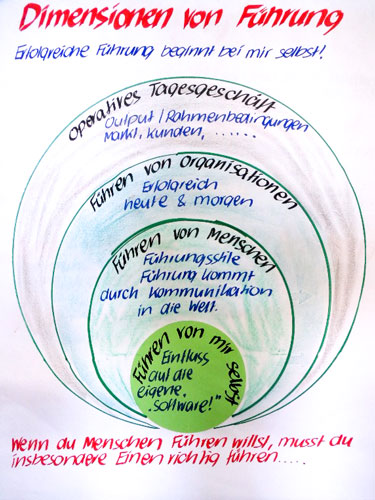 Dimensionen von Führung
Erfolgreiche Führung beginnt bei mir selbst!
Operatives Tagesgeschäft
Output / Rahmenbedingungen
Markt, Kunden, ......
Führen von Organisationen
Erfolgreich
heute & morgen
Führen von Menschen
Führungsstile
Führung kommt
durch Kommunikation
in die Welt.
Führen von mir selbst
Einfluss
auf die
eigene
"Software!"
Wenn du Menschen Führen willst, musst du
insbesondere Einen richtig führen.....